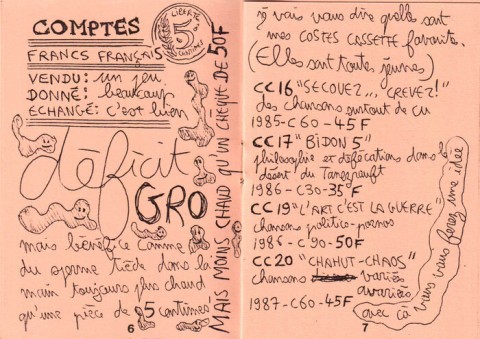 COMPTES
LIBERTÉ
5
CENTIMES
FRANCS FRANÇAIS
VENDU: un peu
DONNÉ: beaucoup
ECHANGÉ: c'est bien
déficit
GRO
mais bénéfice comme
du sperme tiède dans la
main toujours plus chaud
qu'une pièce de 5 centimes
MAIS MOINS CHAUD QU'UN CHEQUE DE 50F
6
Je vais vous dire quelles sont
mes COSTES CASSETTE favorite.
(Elles sont toutes jeunes)
CC16 "SECOUEZ... CREVEZ!"
des chansons surtout de cu
1985-C60-45F
CC17 "BIDON 5"
philosophie et défécations dans le
désert du
1986-C30-35F
CC19 "L'ART C'EST LA GUERRE"
chansons politico-pornos
1986-C90-50F
CC20 "CHAHUT-CHAOS"
chansons variées
avariées
1987-C60-45F
avec ça vous vous ferez une idée
7